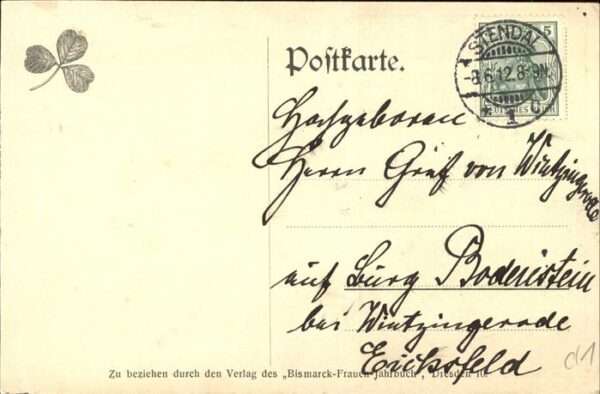 Postkarte.
STENDAL
-8.6.12.8-9N.
* 1 c
5
DEUTSCHES REICH
Hochgeboren
Herrn Graf von Wintzingerode
auf Burg Bodenstein
bei Wintzingerode
Eichsfeld
d1
Zu beziehen durch den Verlag des „Bismarck-Frauen-Jahrbuch", Dresden